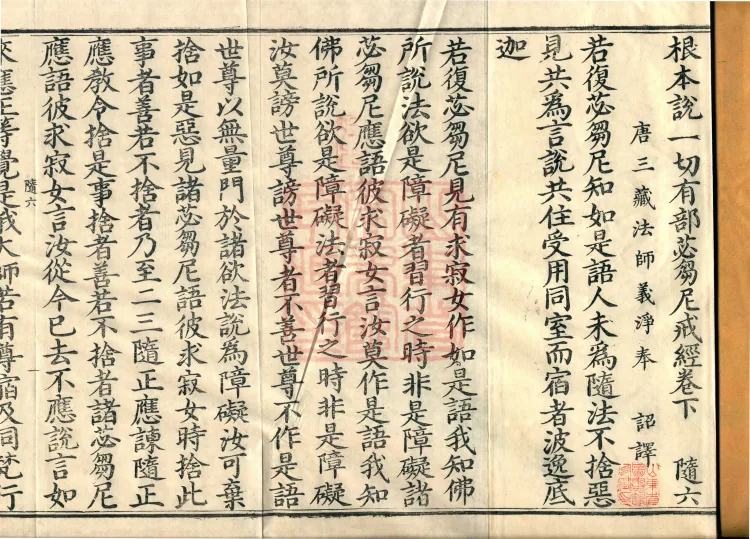 根本說一切有部苾芻尼戒經卷下　隨六
唐三藏法師義淨奉　詔譯
若復苾芻尼知如是語人未為隨法不捨惡
見共為言說共住受用同室而宿者波逸底
迦
若復苾芻尼見有求寂女作如是語我知佛
所說法欲是障礙者習行之時非是障礙諸
苾芻尼應語彼求寂女言汝莫作是語我知
佛所說欲是障礙法者習行之時非是障礙
汝莫謗世尊謗世尊者不善世尊不作是語
世尊以無量門於諸欲法說為障礙汝可棄
捨如是惡見諸苾芻尼語彼求寂女時捨此
事者善若不捨者乃至二三隨正應諫隨正
應教令捨是事捨者善若不捨者諸苾芻尼
應語彼求寂女言汝從今已去不應說言如
隨六
來應正等覺是我大師若有尊宿及同梵行